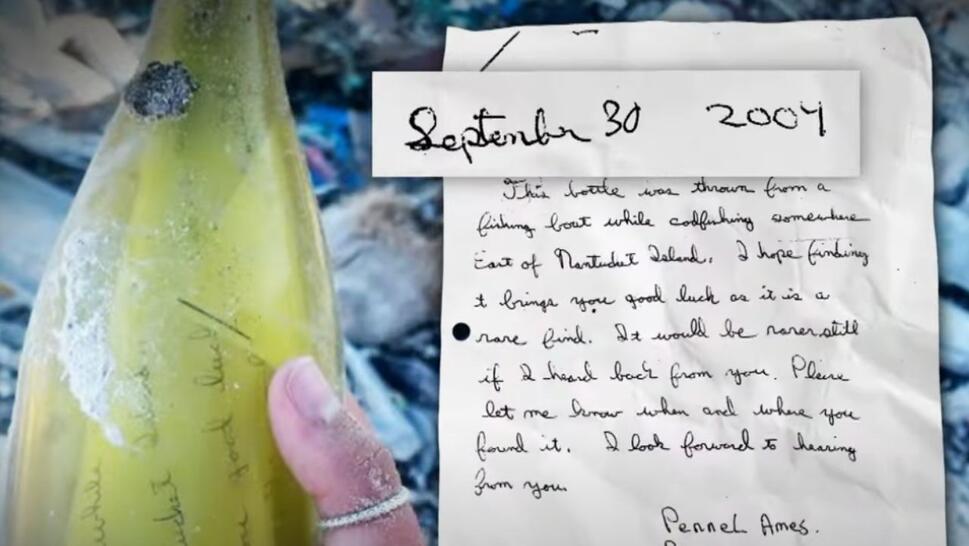 September 30 2004
This bottle was thrown from a
fishing boat while codfishing somewhere
East of Nantucket Island. I hope finding
t brings you good luck as it is a
rare find. It would be rarer still
if I heard back from you. Please
let me know when and where you
found it. I look forward to hearing
from you.
Pennel Ames.
while
good luck